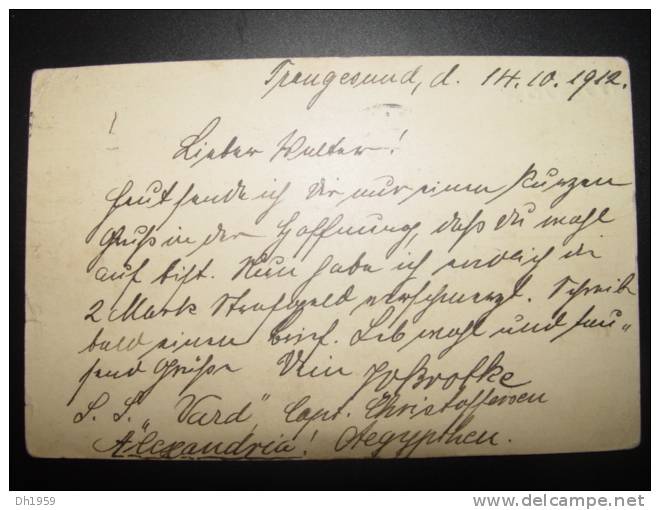 Trongesund, d. 14.10.1912.
Lieber Walter!
Heut sende ich Dir nur einen kurzen
Gruß in der Hoffnung, daß Du wohl
auf bist. Nun habe ich endlich die
2 Mark Strafgeld verschmerzt. Schreib
bald einen Brief. Leb wohl und tau„
send Grüße Dein
S. S. „Vard" Capt. Christoffersen
Alexandria! Aegypthen.
DH1959
delcampe.net